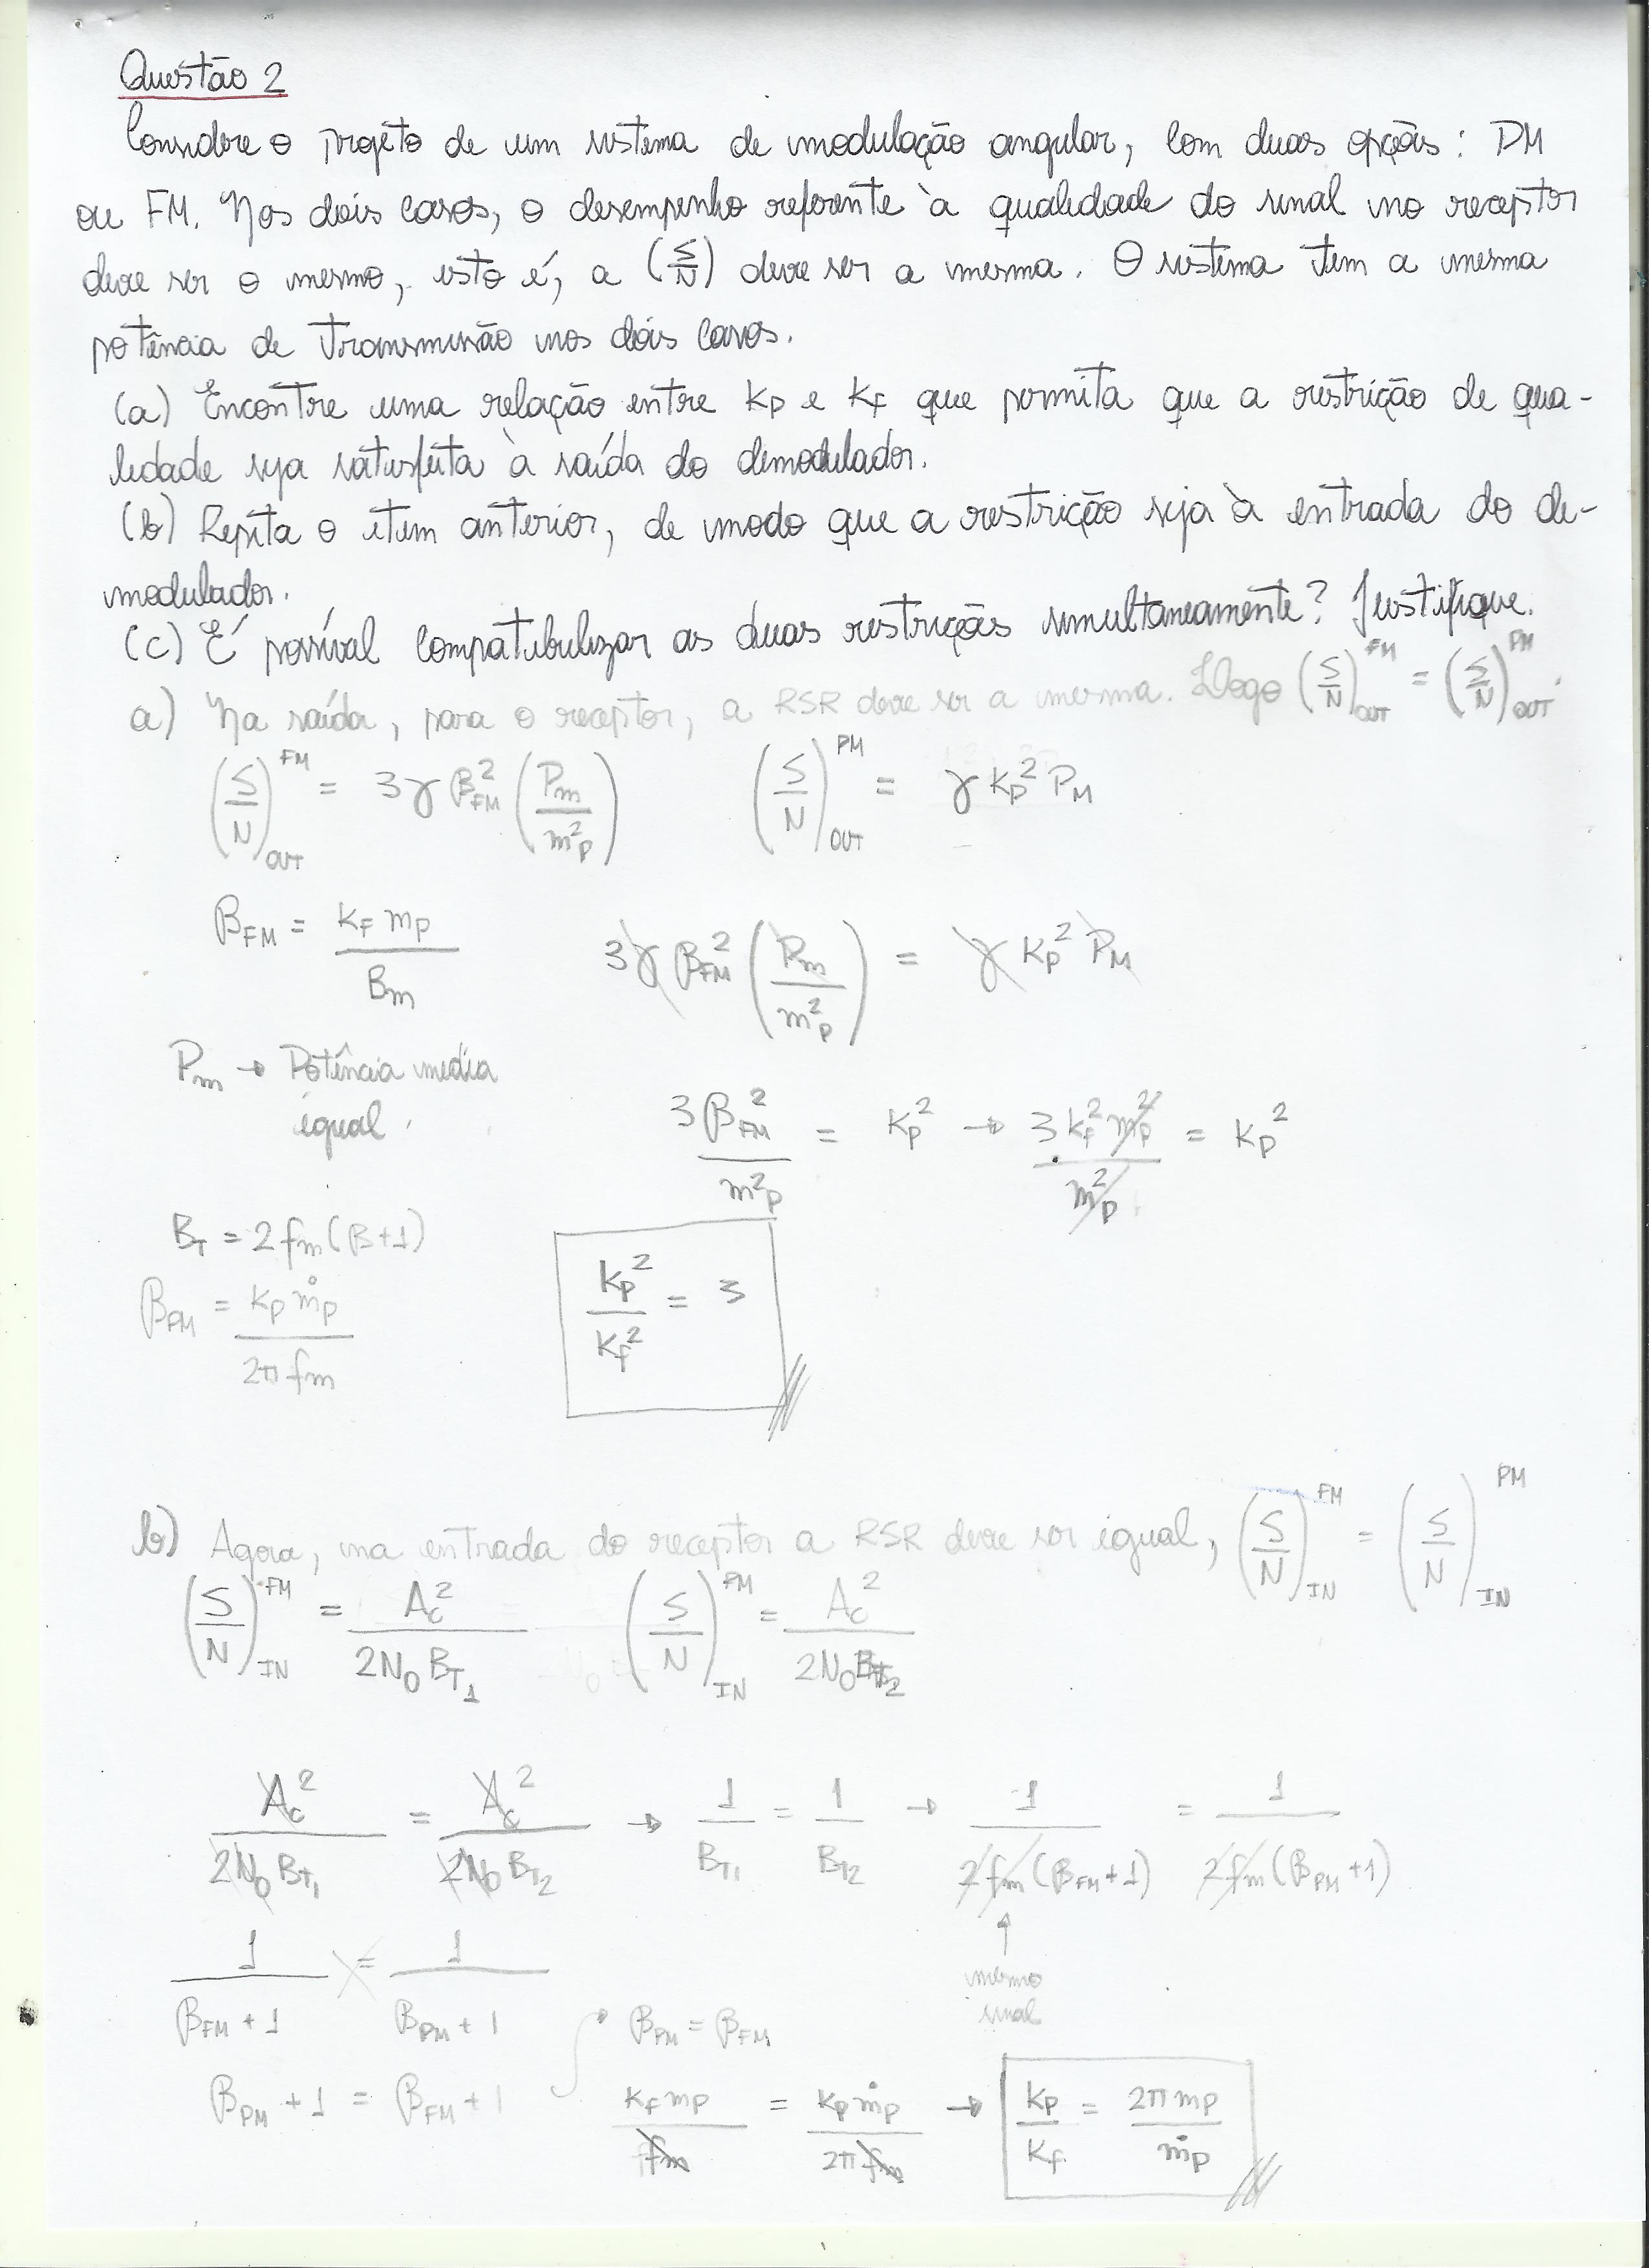 Questão 2
Considere o projeto de um sistema de modulação angular, com duas opções: PM
ou FM. Nos dois casos, o desempenho referente à qualidade do sinal no receptor
deve ser o mesmo, isto é, a (S/N) deve ser a mesma. O sistema tem a mesma
potência de transmissão nos dois casos.
(a) Encontre uma relação entre kp e kf que permita que a restrição de qua-
lidade seja satisfeita à saída do demodulador.
(b) Repita o item anterior, de modo que a restrição seja à entrada do de-
modulador.
(c) É possível compatibilizar as duas restrições simultaneamente? Justifique.
a) Na saída, para o receptor, a RSR deve ser a mesma. Logo (S/N)_OUT^FM = (S/N)_OUT^PM.
(S/N)_OUT^FM = 3γ β_FM^2 (Pm/m_p^2) (S/N)_OUT^PM = γ kp^2 P_M
β_FM = kf mp / Bm 3γ β_FM^2 (Pm/m_p^2) = γ kp^2 P_M
Pm → Potência media
igual.
3β_FM^2 / m_p^2 = kp^2 → 3kf^2 m_p^2 / m_p^2 = kp^2
B_T = 2fm(β+1)
β_PM = kp ṁp / 2π fm
kp^2 / kf^2 = 3
b) Agora, na entrada do receptor a RSR deve ser igual, (S/N)_IN^FM = (S/N)_IN^PM
(S/N)_IN^FM = Ac^2 / 2N0 B_T1 (S/N)_IN^PM = Ac^2 / 2N0 B_T2
Ac^2 / 2N0 B_T1 = Ac^2 / 2N0 B_T2 → 1/B_T1 = 1/B_T2 → 1 / 2fm(β_FM+1) = 1 / 2fm(β_PM+1)
↑
mesmo
sinal
1 / β_FM + 1 = 1 / β_PM + 1
β_PM + 1 = β_FM + 1 → β_PM = β_FM
kf mp / fm = kp ṁp / 2π fm → kp / kf = 2π mp / ṁp